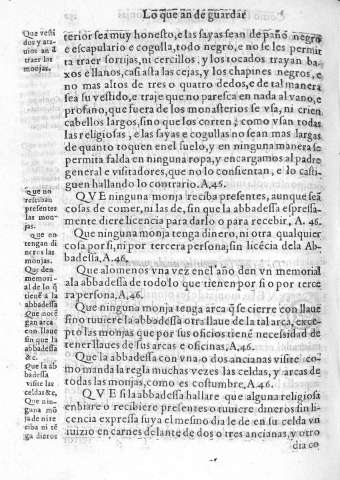 Lo que an de guardar
Que vesti
dos y ata
uios an d
traer las
monjas.
terior sea muy honesto, e las sayas sean de paño negro
e escapulario e cogulla, todo negro, e no se les permit
ta traer sortijas, ni cercillos, y los tocados trayan ba-
xos e llanos, casi asta las cejas, y los chapines negros, e
no mas altos de tres o quatro dedos, e de tal manera
sea su vestido, e traje que no paresca en nada al vano, e
profano, que fuera de los monasterios se vsa, ni crien
cabellos largos, sino que los corten, como vsan todas
las religiosas, e las sayas e cogullas no sean mas largas
de quanto toquen en el suelo, y en ninguna manera se
permita falda en ninguna ropa, y encargamos al padre
general e visitadores, que no lo consientan, e lo casti-
guen hallando lo contrario. A. 46.
que no
resciban
presentes
las mon-
jas.
QVE ninguna monja reciba presentes, aunque seā
cosas de comer, ni las de, sin que la abbadessa espressa-
mente diere licencia para darlo o para receber, A. 46.
que no
tengan di
neros las
monjas.
Que ninguna monja tenga dinero, ni otra qualquier
cosa por si, ni por tercera persona, sin licēcia dela Ab-
badessa, A. 46.
Que den
memori-
al de lo q̄
tienē a la
abbadessa
Que alomenos vna vez en el año den vn memorial
ala abbadessa de todo lo que tienen por si o por terce
ra persona, A. 46.
Que noce
gan arca
con llaue
sin que la
abbadessa
&c.
Que ninguna monja tenga arca q̄ se cierre con llaue
sino tuuiere la abbadessa otra llaue de la tal arca, exce-
pto las monjas que por sus oficios tienē necessidad de
tener llaues de sus arcas e oficinas, A. 46.
Que la ab
badessa
visite las
celdas &c.
Que la abbadessa con vna o dos ancianas visite co-
mo manda la regla muchas vezes las celdas, y arcas de
todas las monjas, como es costumbre, A. 46.
Que nin-
guna mō
ja de nire
ciba ni tē
ga dieros
QVE si la abbadessa hallare que alguna religiosa
enbiare o recibiere presentes o tuuiere dineros sin li-
cencia expressa suya el mesmo dia le de en su celda vn
iuizio en carnes delante de dos o tres ancianas, y otro
dia co